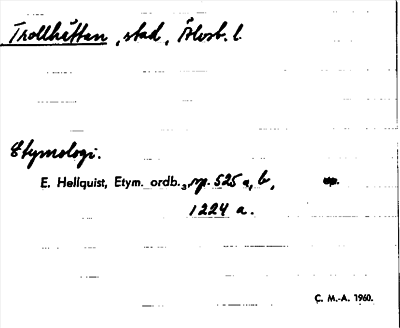 Trollhättan, stad, Älvsb. l.
Etymologi.
E. Hellquist, Etym. ordb.3, sp. 525 a, b,
1224 a.
C. M.-A. 1960.